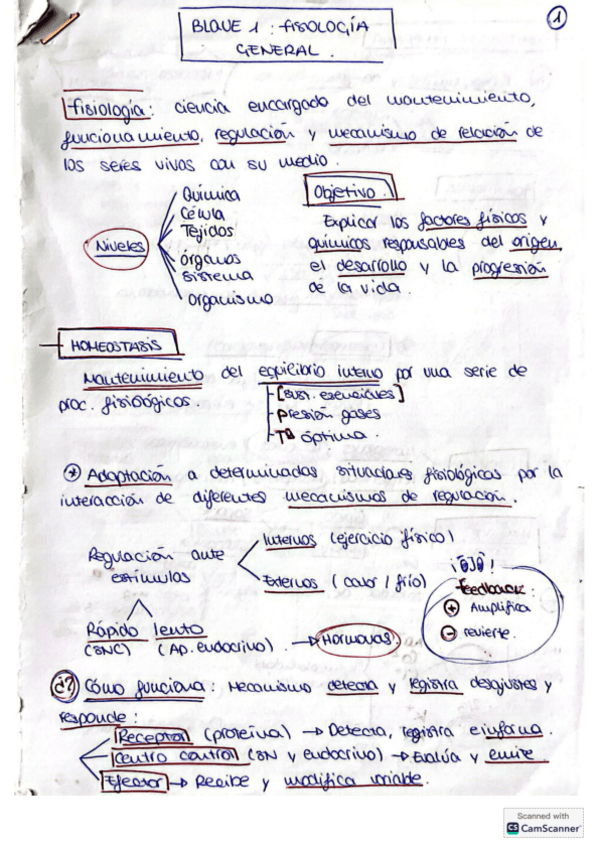 BLOQUE 1: FISIOLOGÍA
GENERAL.
1
Fisiología: ciencia encargado del mantenimiento,
funcionamiento, regulación y mecanismo de relación de
los seres vivos con su medio.
Niveles
Química
Célula
Tejidos
Órganos
Sistema
Organismo
Objetivo.
Explicar los factores físicos y
químicos responsables del origen,
el desarrollo y la progresión
de la vida.
HOMEOSTASIS
Mantenimiento del equilibrio interno por una serie de
proc. fisiológicos.
[sust. esenciales]
Presión gases
Tª óptima.
+ Adaptación a determinadas situaciones fisiológicas por la
interacción de diferentes mecanismos de regulación.
Regulación ante
estímulos
Internos (ejercicio físico)
Externos (calor / frío)
Rápido lento
(SNC) (Ap. endocrino). → Hormonas
¡OJO!
Feedback:
+ Amplifica
- revierte.
¿? Cómo funciona: Mecanismo detecta y registra desajustes y
responde:
Receptor (proteína) → Detecta, registra e informa.
Centro control (SN y endocrino) → Evalúa y emite
Efector → Recibe y modifica variable.
Scanned with
CS CamScanner